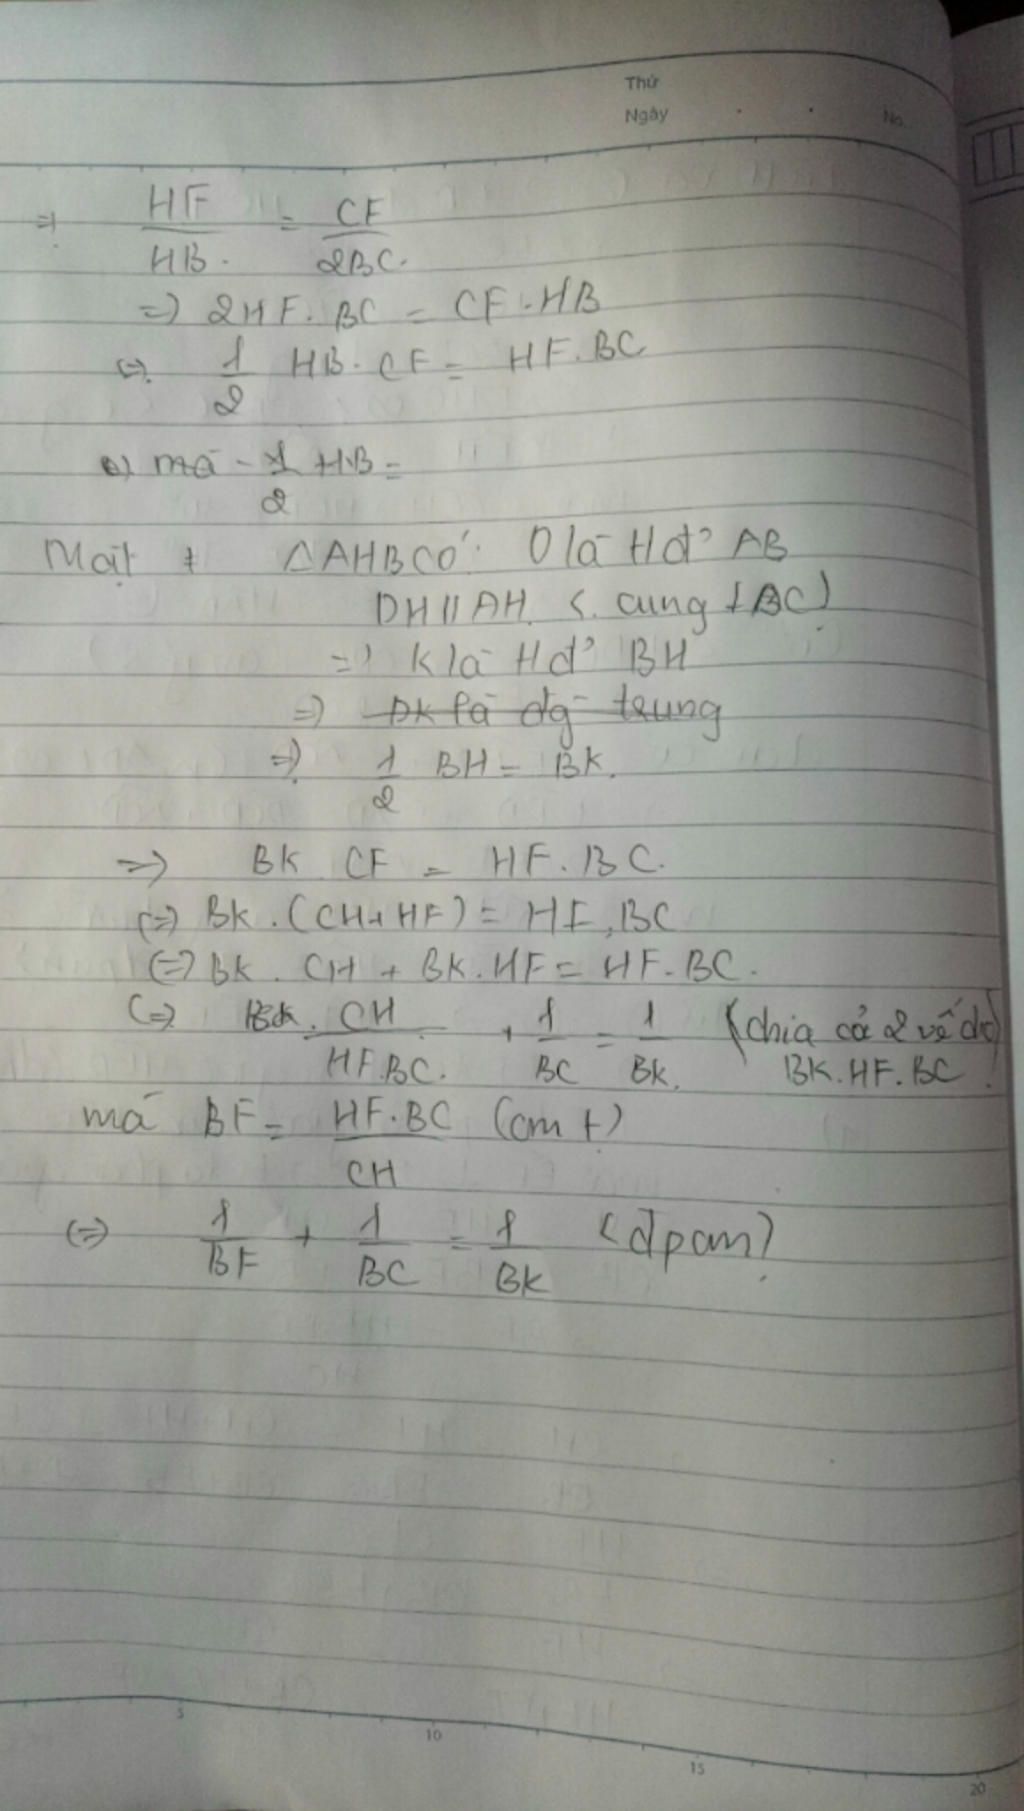 Thứ
Ngày
No.
=> HF/HB = CF/2BC.
=> 2HF. BC = CF. HB
<=> 1/2 HB. CF = HF. BC
mà 1/2 HB =
Mặt ≠ △AHB có: O là Hđ' AB
DH // AH (cung ⊥ BC)
=> K là Hđ' BH
=> DK là đg trung
=> 1/2 BH = BK.
=> BK. CF = HF. BC.
<=> BK. (CH + HF) = HF. BC
<=> BK. CH + BK. HF = HF. BC.
<=> CH/HF.BC. + 1/BC = 1/BK. (chia cả 2 vế do
BK. HF. BC)
mà BF = HF.BC/CH (cm t)
<=> 1/BF + 1/BC = 1/BK (đpcm)
5
10
15
20